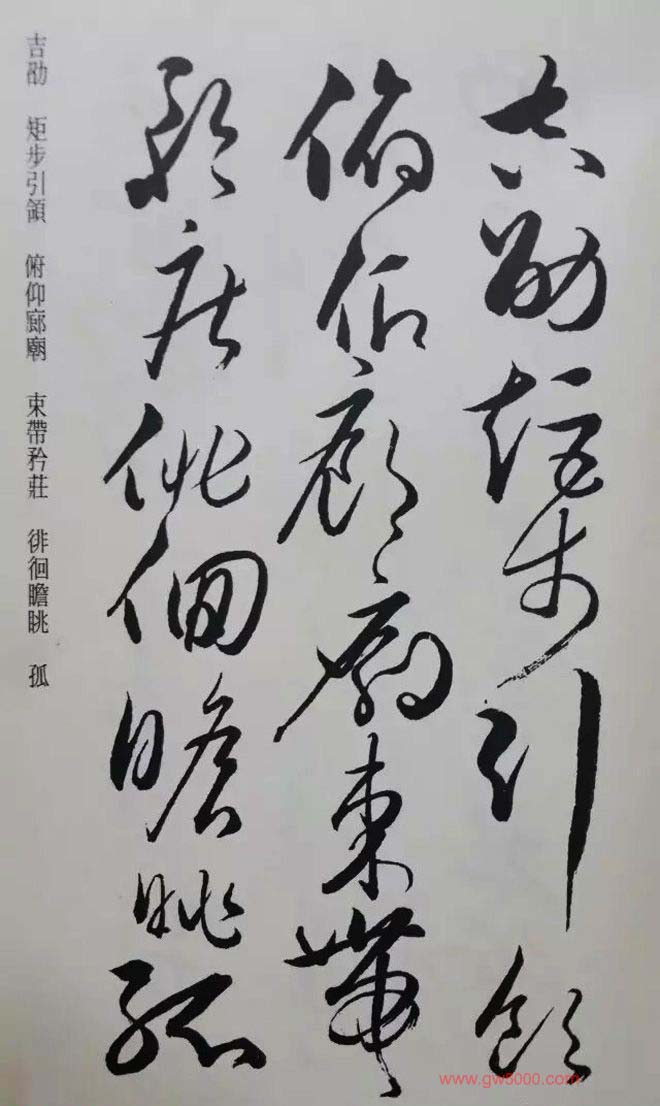 吉劭矩步引領
俯仰廊廟束帶
矜莊徘徊瞻眺孤
吉劭 矩步引領 俯仰廊廟 束帶矜莊 徘徊瞻眺 孤
www.gw5000.com